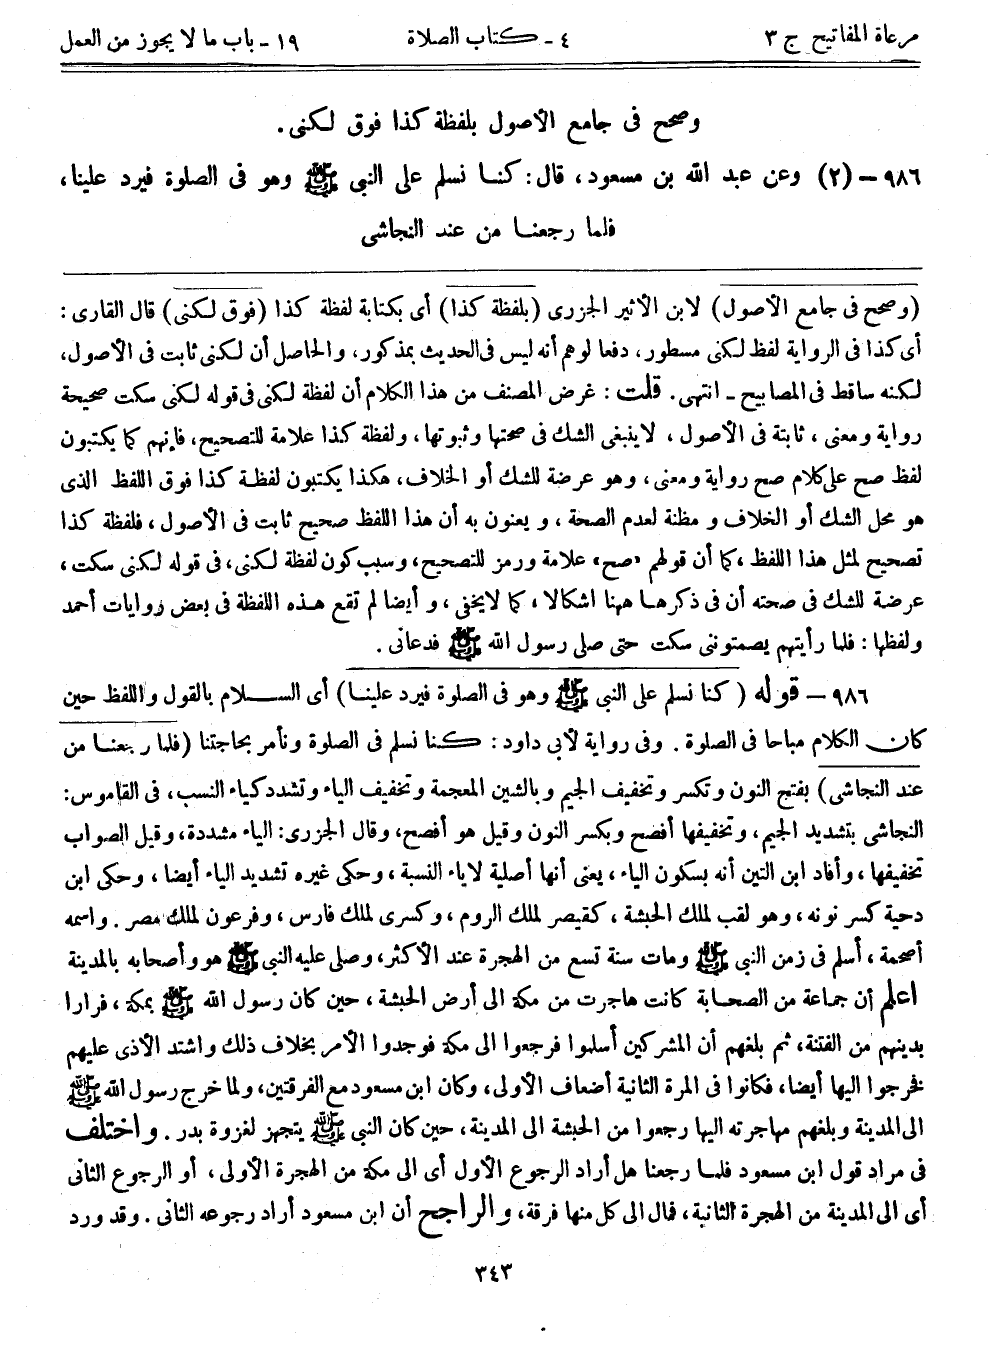 مرعاة المفاتيح ج ٣ ٤ - كتاب الصلاة ١٩ - باب ما لا يجوز من العمل
وصحح فى جامع الأصول بلفظة كذا فوق لكنى.
٩٨٦ - (٢) وعن عبد الله بن مسعود، قال: كنا نسلم على النبى ﷺ وهو فى الصلوة فيرد علينا،
فلما رجعنا من عند النجاشى
(وصحح فى جامع الأصول) لابن الأثير الجزرى (بلفظة كذا) أى بكتابة لفظة كذا (فوق لكنى) قال القارى:
أى كذا فى الرواية لفظ لكنى مسطور، دفعا لوهم أنه ليس فى الحديث بمذكور، والحاصل أن لكنى ثابت فى الأصول،
لكنه ساقط فى المصابيح - انتهى. قلت: غرض المصنف من هذا الكلام أن لفظة لكنى فى قوله لكنى سكت صحيحة
رواية ومعنى، ثابتة فى الأصول، لاينبغى الشك فى صحتها وثبوتها، ولفظة كذا علامة للتصحيح، فإنهم كما يكتبون
لفظ صح على كلام صح رواية ومعنى، وهو عرضة للشك أو الخلاف، هكذا يكتبون لفظة كذا فوق اللفظ الذى
هو محل الشك أو الخلاف و مظنة لعدم الصحة، و يعنون به أن هذا اللفظ صحيح ثابت فى الأصول، فلفظة كذا
تصحيح لمثل هذا اللفظ، كما أن قولهم «صح» علامة ورمز للتصحيح، وسبب كون لفظة لكنى، فى قوله لكنى سكت،
عرضة للشك فى صحته أن فى ذكرها ههنا اشكالا، كما لايخفى، و أيضا لم تقع هذه اللفظة فى بعض روايات أحمد
ولفظها: فلما رأيتهم يصمتونى سكت حتى صلى رسول الله ﷺ فدعانى.
٩٨٦ - قوله (كنا نسلم على النبى ﷺ وهو فى الصلوة فيرد علينا) أى السلام بالقول واللفظ حين
كان الكلام مباحا فى الصلوة. وفى رواية لأبى داود: كنا نسلم فى الصلوة ونأمر بحاجتنا (فلما رجعنا من
عند النجاشى) بفتح النون وتكسر وتخفيف الجيم وبالشين المعجمة وتخفيف الياء وتشدد كياء النسب، فى القاموس:
النجاشى بتشديد الجيم، وتخفيفها أفصح وبكسر النون وقيل هو أفصح، وقال الجزرى: الياء مشددة، وقيل الصواب
تخفيفها، وأفاد ابن التين أنه بسكون الياء، يعنى أنها أصلية لاياء النسبة، وحكى غيره تشديد الياء أيضا، وحكى ابن
دحية كسر نونه، وهو لقب لملك الحبشة، كقيصر لملك الروم، وكسرى لملك فارس، وفرعون لملك مصر. واسمه
أصحمة، أسلم فى زمن النبى ﷺ ومات سنة تسع من الهجرة عند الأكثر، وصلى عليه النبى ﷺ هو وأصحابه بالمدينة
اعلم أن جماعة من الصحابة كانت هاجرت من مكة الى أرض الحبشة، حين كان رسول الله ﷺ بمكة، فرارا
بدينهم من الفتنة، ثم بلغهم أن المشركين أسلموا فرجعوا الى مكة فوجدوا الأمر بخلاف ذلك واشتد الأذى عليهم
فخرجوا اليها أيضا، فكانوا فى المرة الثانية أضعاف الأولى، وكان ابن مسعود مع الفرقتين، ولما خرج رسول الله ﷺ
الى المدينة وبلغهم مهاجرته اليها رجعوا من الحبشة الى المدينة، حين كان النبى ﷺ يتجهز لغزوة بدر. واختلف
فى مراد قول ابن مسعود فلما رجعنا هل أراد الرجوع الأول أى الى مكة من الهجرة الأولى، أو الرجوع الثانى
أى الى المدينة من الهجرة الثانية، فمال الى كل منها فرقة، والراجح أن ابن مسعود أراد رجوعه الثانى. وقد ورد
٣٤٣